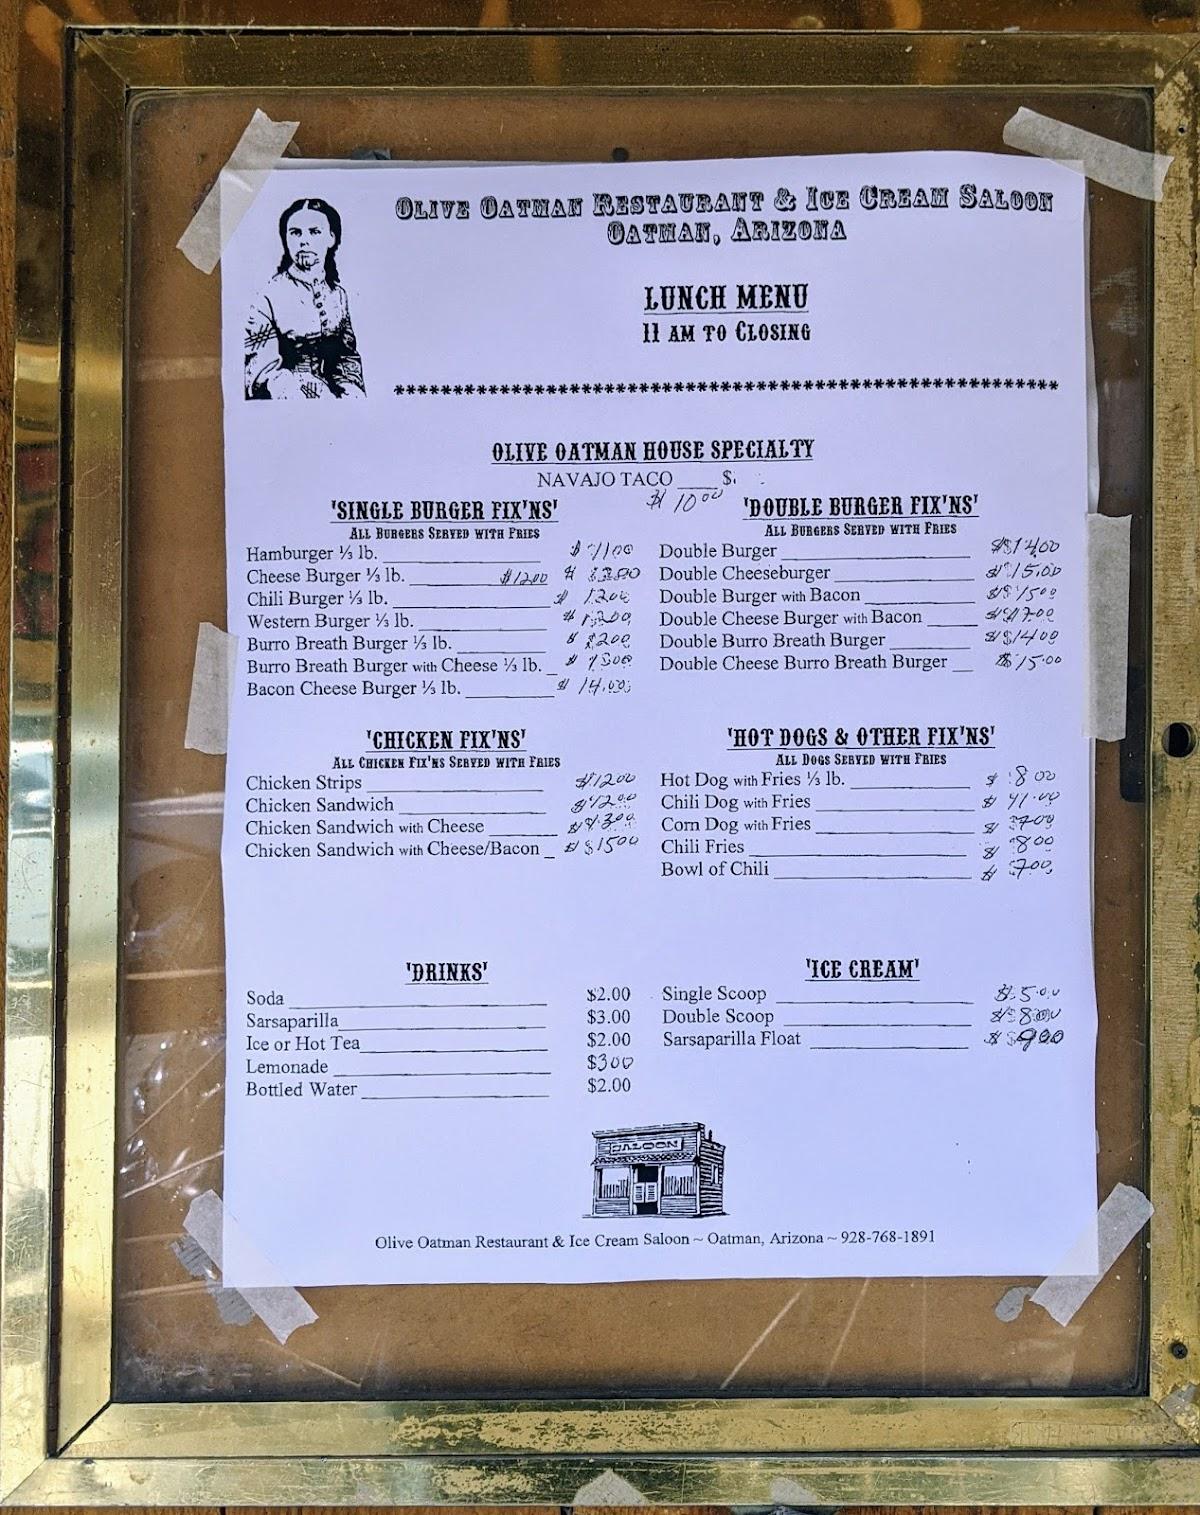 Olive Oatman Restaurant & Ice Cream Saloon
Oatman, Arizona
LUNCH MENU
11 am to Closing
************************************************************
OLIVE OATMAN HOUSE SPECIALTY
NAVAJO TACO ____ $
$ 10.00
'SINGLE BURGER FIX'NS'
All Burgers Served with Fries
Hamburger ⅓ lb. $ 11.00
Cheese Burger ⅓ lb. $12.00
Chili Burger ⅓ lb. $ 12.00
Western Burger ⅓ lb. $
Burro Breath Burger ⅓ lb. $
Burro Breath Burger with Cheese ⅓ lb. $
Bacon Cheese Burger ⅓ lb. $ 14.00
'DOUBLE BURGER FIX'NS'
All Burgers Served with Fries
Double Burger $14.00
Double Cheeseburger $15.00
Double Burger with Bacon $15.00
Double Cheese Burger with Bacon
Double Burro Breath Burger $14.00
Double Cheese Burro Breath Burger $15.00
'CHICKEN FIX'NS'
All Chicken Fix'ns Served with Fries
Chicken Strips $12.00
Chicken Sandwich $12.00
Chicken Sandwich with Cheese
Chicken Sandwich with Cheese/Bacon $15.00
'HOT DOGS & OTHER FIX'NS'
All Dogs Served with Fries
Hot Dog with Fries ⅓ lb. $ 8.00
Chili Dog with Fries $
Corn Dog with Fries $ 7.00
Chili Fries $ 8.00
Bowl of Chili $ 7.00
'DRINKS'
Soda $2.00
Sarsaparilla $3.00
Ice or Hot Tea $2.00
Lemonade $3.00
Bottled Water $2.00
'ICE CREAM'
Single Scoop $ 5.00
Double Scoop $ 8.00
Sarsaparilla Float $ 9.00
SALOON
Olive Oatman Restaurant & Ice Cream Saloon ~ Oatman, Arizona ~ 928-768-1891